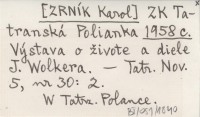 [ZRNÍK Karol] ZK Ta-
transká Polianka 1958 c.
Výstava o živote a diele
J. Wolkera. — Tatr. Nov.
5, nr 30: 2.
W Tatr. Polance.